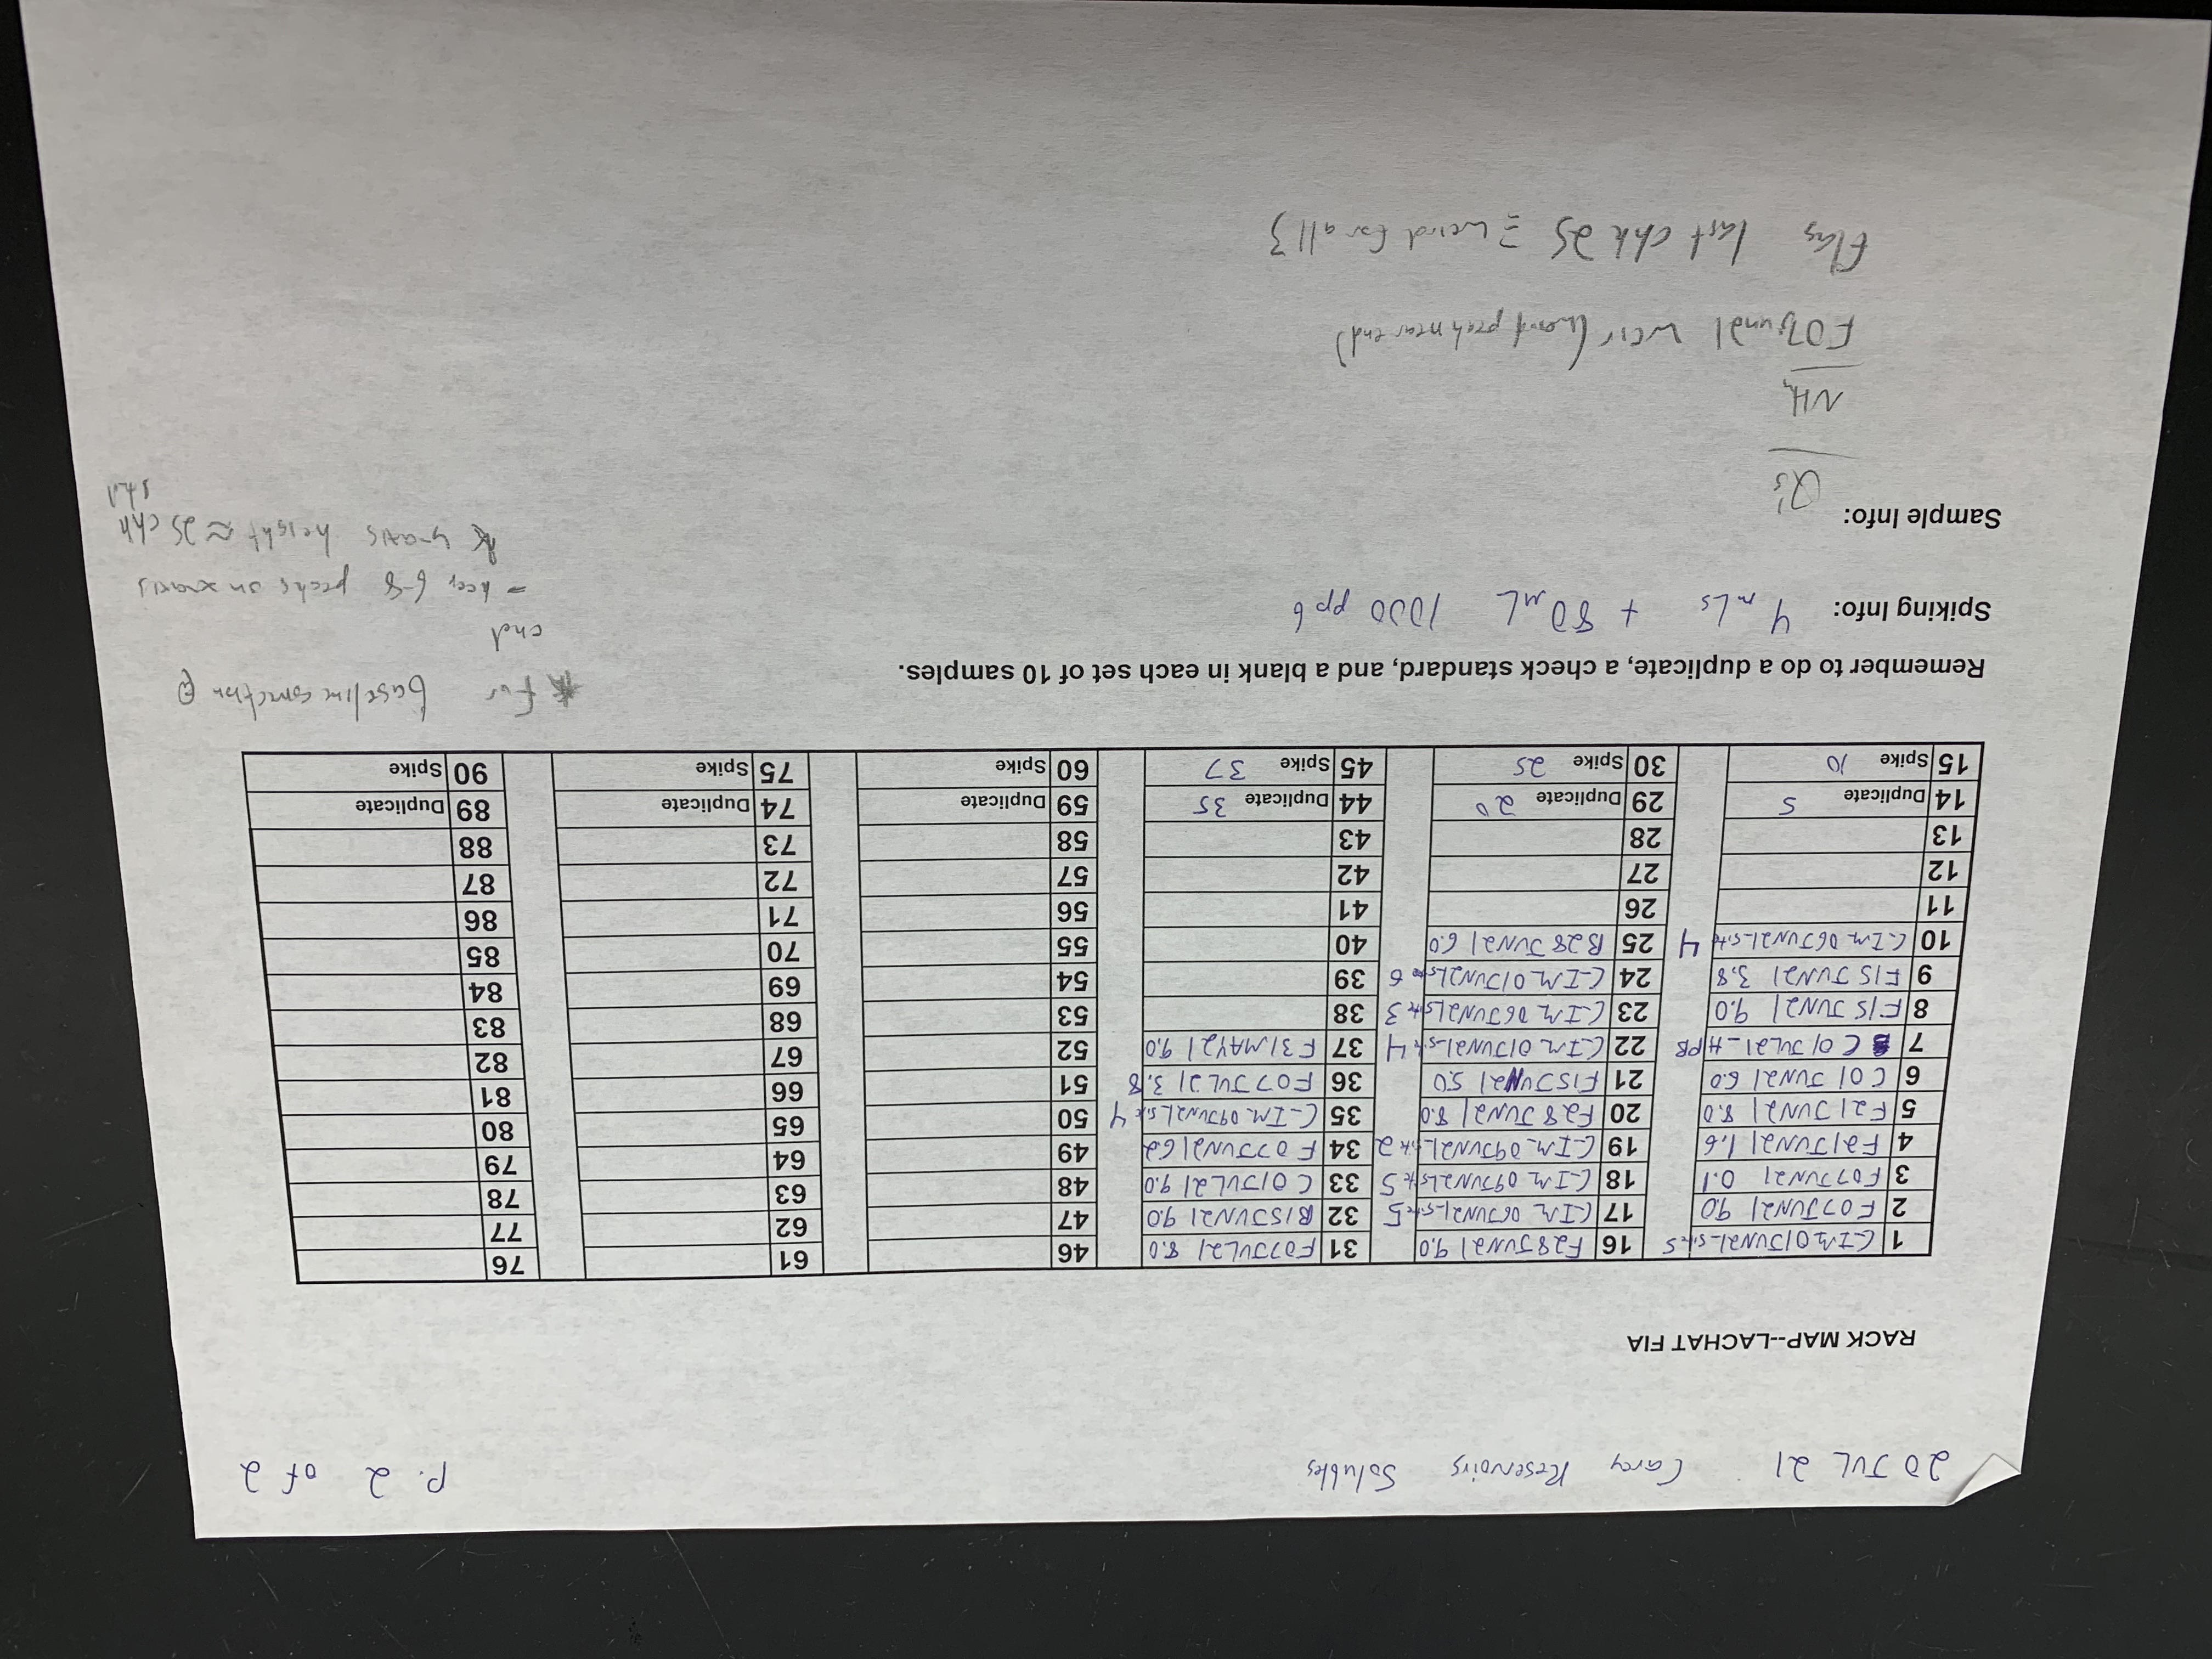 20 JUL 21 Carey Reservoirs Solubles P. 2 of 2
RACK MAP--LACHAT FIA
1 C_IM_01JUN21_site 5 16 F28JUN21 9.0 31 F07JUL21 8.0 46 61 76
2 F07JUN21 9.0 17 C_IM_06JUN21_site 5 32 B15JUN21 9.0 47 62 77
3 F07JUN21 0.1 18 C_IM_09JUN21_site 5 33 C01JUL21 9.0 48 63 78
4 F21JUN21 1.6 19 C_IM_09JUN21_site 2 34 F07JUN21 6.2 49 64 79
5 F21JUN21 8.0 20 F28JUN21 8.0 35 C_IM_09JUN21_site 4 50 65 80
6 C01JUN21 6.0 21 F15JUN21 5.0 36 F07JUL21 3.8 51 66 81
7 C01JUL21_HPB 22 C_IM_01JUN21_site 4 37 F31MAY21 9.0 52 67 82
8 F15JUN21 9.0 23 C_IM_06JUN21_site 3 38 53 68 83
9 F15JUN21 3.8 24 C_IM_01JUN21_site 6 39 54 69 84
10 C_IM_06JUN21_site 4 25 B28JUN21 6.0 40 55 70 85
11 26 41 56 71 86
12 27 42 57 72 87
13 28 43 58 73 88
14 Duplicate 5 29 Duplicate 20 44 Duplicate 35 59 Duplicate 74 Duplicate 89 Duplicate
15 Spike 10 30 Spike 25 45 Spike 37 60 Spike 75 Spike 90 Spike
* For baseline correction @
end
- keep 6-8 peaks on x-axis
& y-axis height ≈ 25 chk
std
Remember to do a duplicate, a check standard, and a blank in each set of 10 samples.
Spiking Info: 4 mLs + 80 µL 1000 ppb
Sample Info:
Q's
NH4
F07jun21 weir (weird peak near end)
Flag last chk 25 weird for all 3